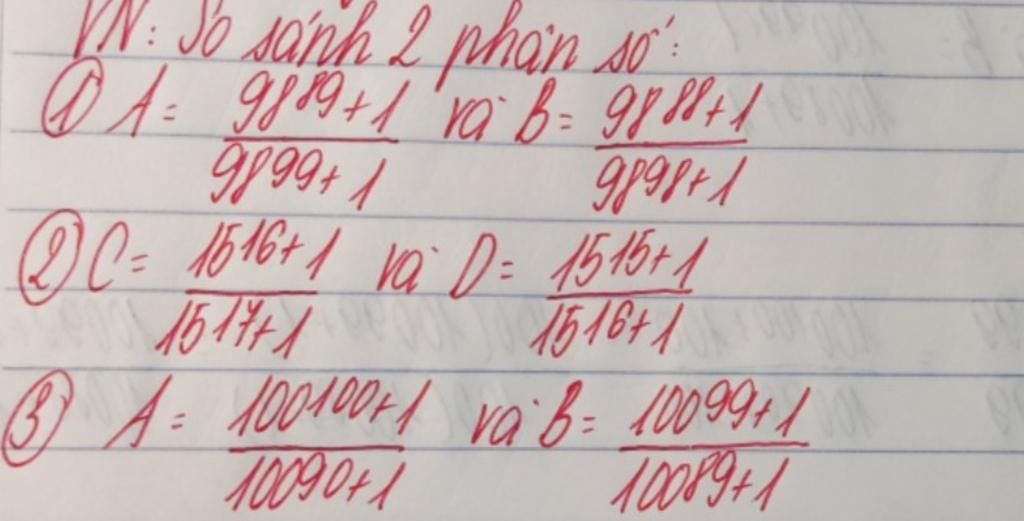 VN: So sánh 2 phân số:
① A = \frac{98^{89}+1}{98^{99}+1} và B = \frac{98^{88}+1}{98^{98}+1}
② C = \frac{15^{16}+1}{15^{17}+1} và D = \frac{15^{15}+1}{15^{16}+1}
③ A = \frac{100^{100}+1}{100^{90}+1} và B = \frac{100^{99}+1}{100^{89}+1}